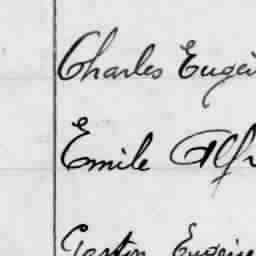 Charles Eugè
Emile Alfr
Gaston Eugène